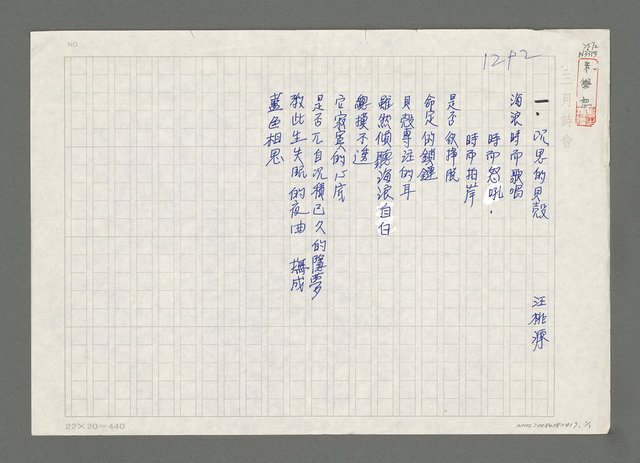 NO.
12+2
三月詩會
一、沉思的貝殼
汪桃源
海浪時而歌唱
時而怒吼，
時而拍岸
是否欲掙脫
命定的鎖鏈
貝殼專注的耳
雖然傾聽海浪自白
總摸不透
它寂寞的心底
是否兀自沉積已久的醫夢
教此生失眠的夜曲 撫成
藍色相思
22×20=440